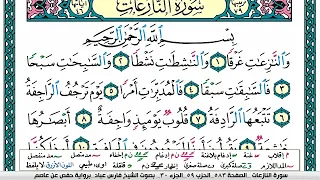 سورة النازعات
بِسْمِ ٱللَّهِ ٱلرَّحْمَٰنِ ٱلرَّحِيمِ
وَٱلنَّٰزِعَٰتِ غَرْقًا ١ وَٱلنَّٰشِطَٰتِ نَشْطًا ٢ وَٱلسَّٰبِحَٰتِ سَبْحًا
٣ فَٱلسَّٰبِقَٰتِ سَبْقًا ٤ فَٱلْمُدَبِّرَٰتِ أَمْرًا ٥ يَوْمَ تَرْجُفُ ٱلرَّاجِفَةُ
٦ تَتْبَعُهَا ٱلرَّادِفَةُ ٧ قُلُوبٌ يَوْمَئِذٍ وَاجِفَةٌ ٨ أَبْصَٰرُهَا
سورة النازعات الصفحة ٥٨٣ الحزب ٥٩ الجزء ٣٠ بصوت الشيخ فارس عباد برواية حفص عن عاصم